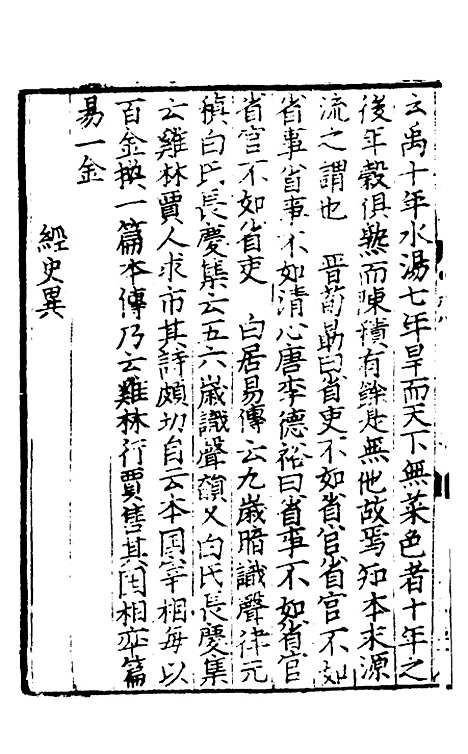 云禹十年水湯七年旱而天下無菜色者十年之
後年穀俱熟而陳積有餘是無他故焉知本末源
流之謂也　晋荀勗曰省吏不如省官省官不如
省事省事不如清心唐李德裕曰省事不如省官
省官不如省吏　白居易傳云九歲暗識聲律元
稹白氏長慶集云五六歲識聲韻又白氏長慶集
云雞林賈人求市其詩頗切自云本国宰相每以
百金换一篇本傳乃云雞林行賈售其国相率篇
易一金
經史異